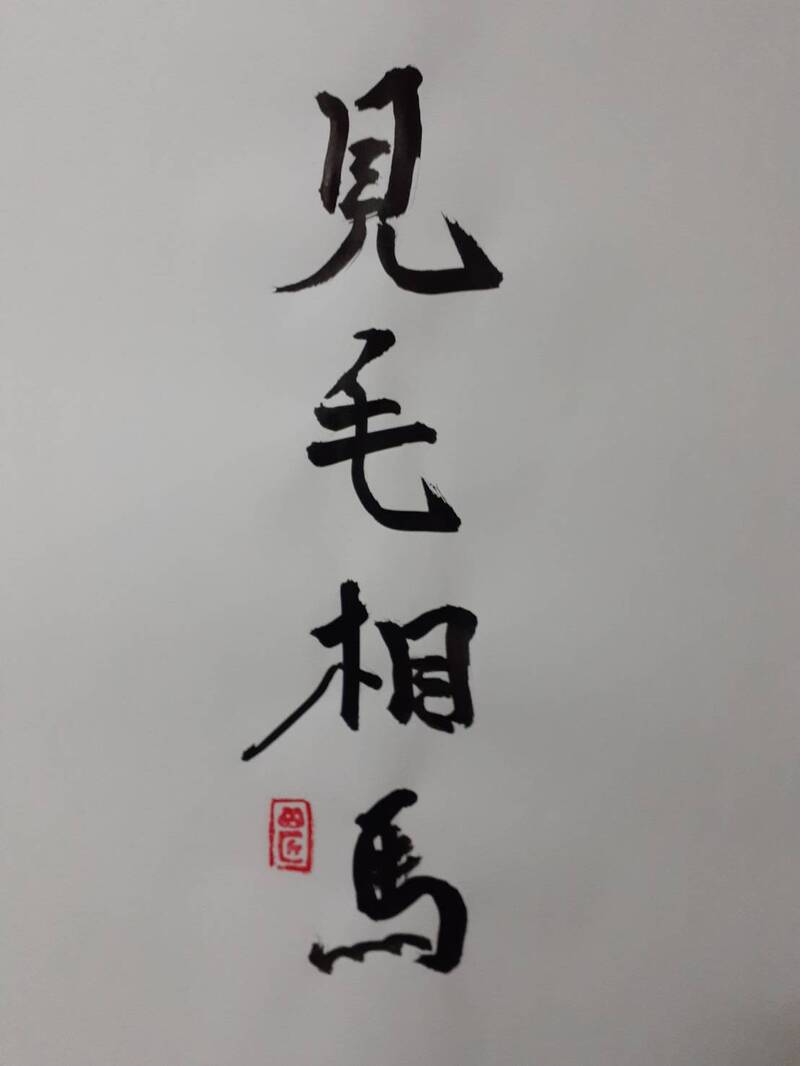 見毛相馬